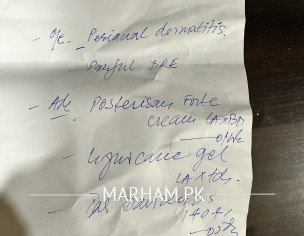 - O/E. - Perianal dermatitis.
- Painful DRE
- Adv Posterisan Forte
cream LA x BD
- Lignocaine gel
LA x tds.
MARHAM.PK
- Tab
1+0+1